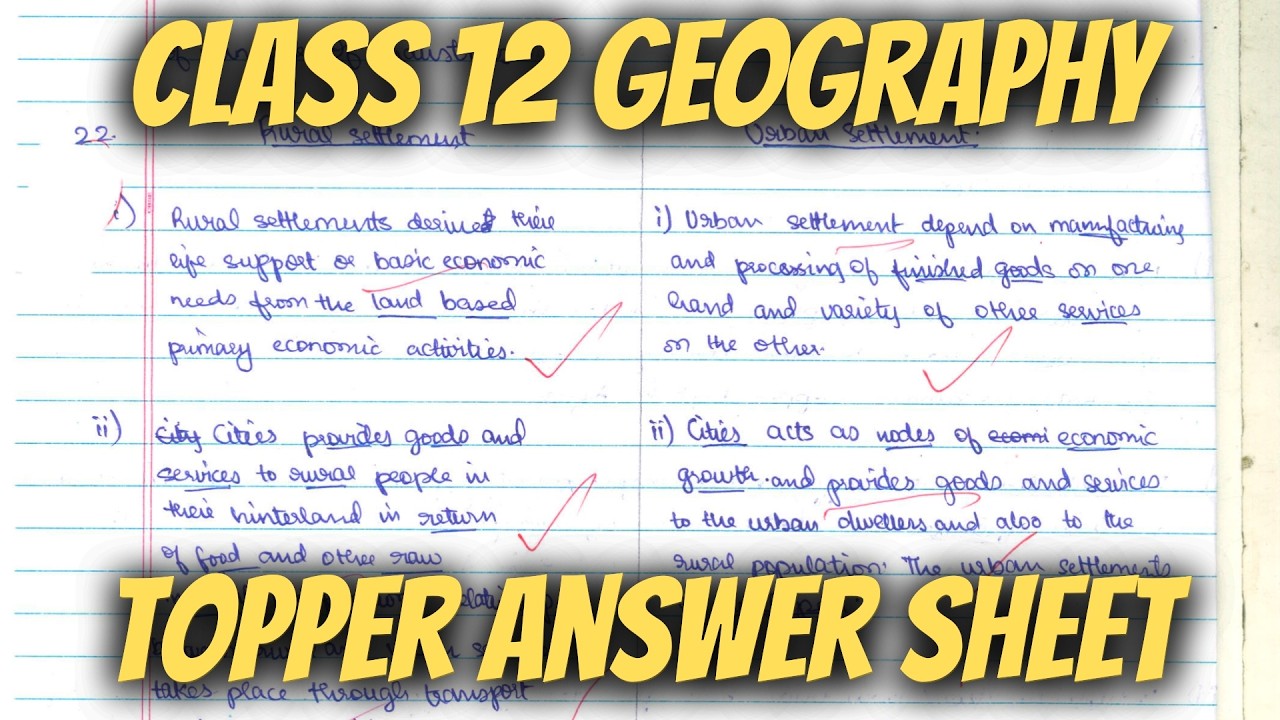 CLASS 12 GEOGRAPHY
22.
Rural settlement
Urban settlement.
i) Rural settlements derived their
life support or basic economic
needs from the land based
primary economic activities.
i) Urban settlement depend on manufacturing
and processing of finished goods on one
hand and variety of other services
on the other.
ii) city Cities provides goods and
services to rural people in
their hinterland in return
of food and other raw
takes place through transport
ii) Cities acts as nodes of economic
growth. and provides goods and services
to the urban dwellers and also to the
rural population. The urban settlements
TOPPER ANSWER SHEET